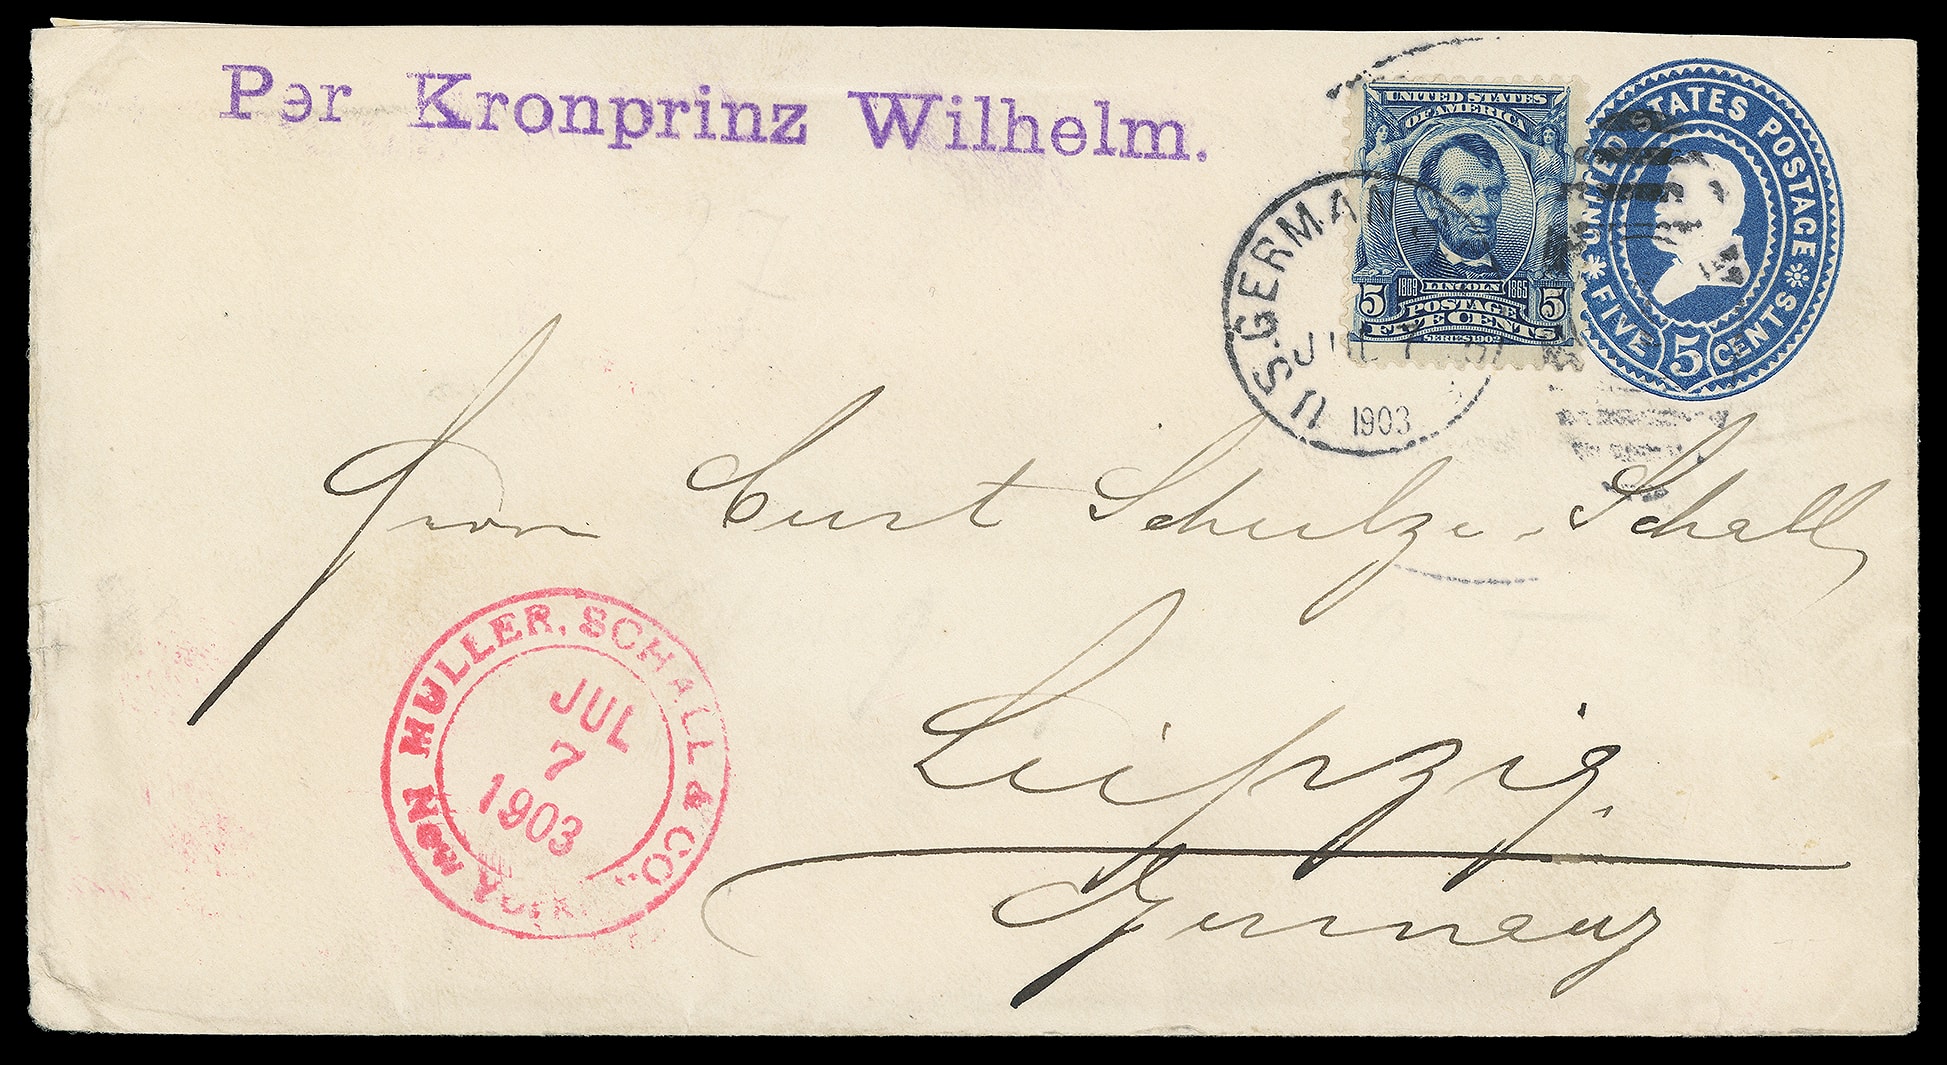 Per Kronprinz Wilhelm.
UNITED STATES
OF AMERICA
1809 LINCOLN 1865
5 POSTAGE 5
FIVE CENTS
SERIES 1902
UNITED STATES POSTAGE
FIVE 5 CENTS
U.S. GERMAN
JUL 7
1903
Herrn Curt Schulze-Schall,
Leipzig.
Germany
MULLER, SCHALL & CO.
NEW YORK
JUL
7
1903